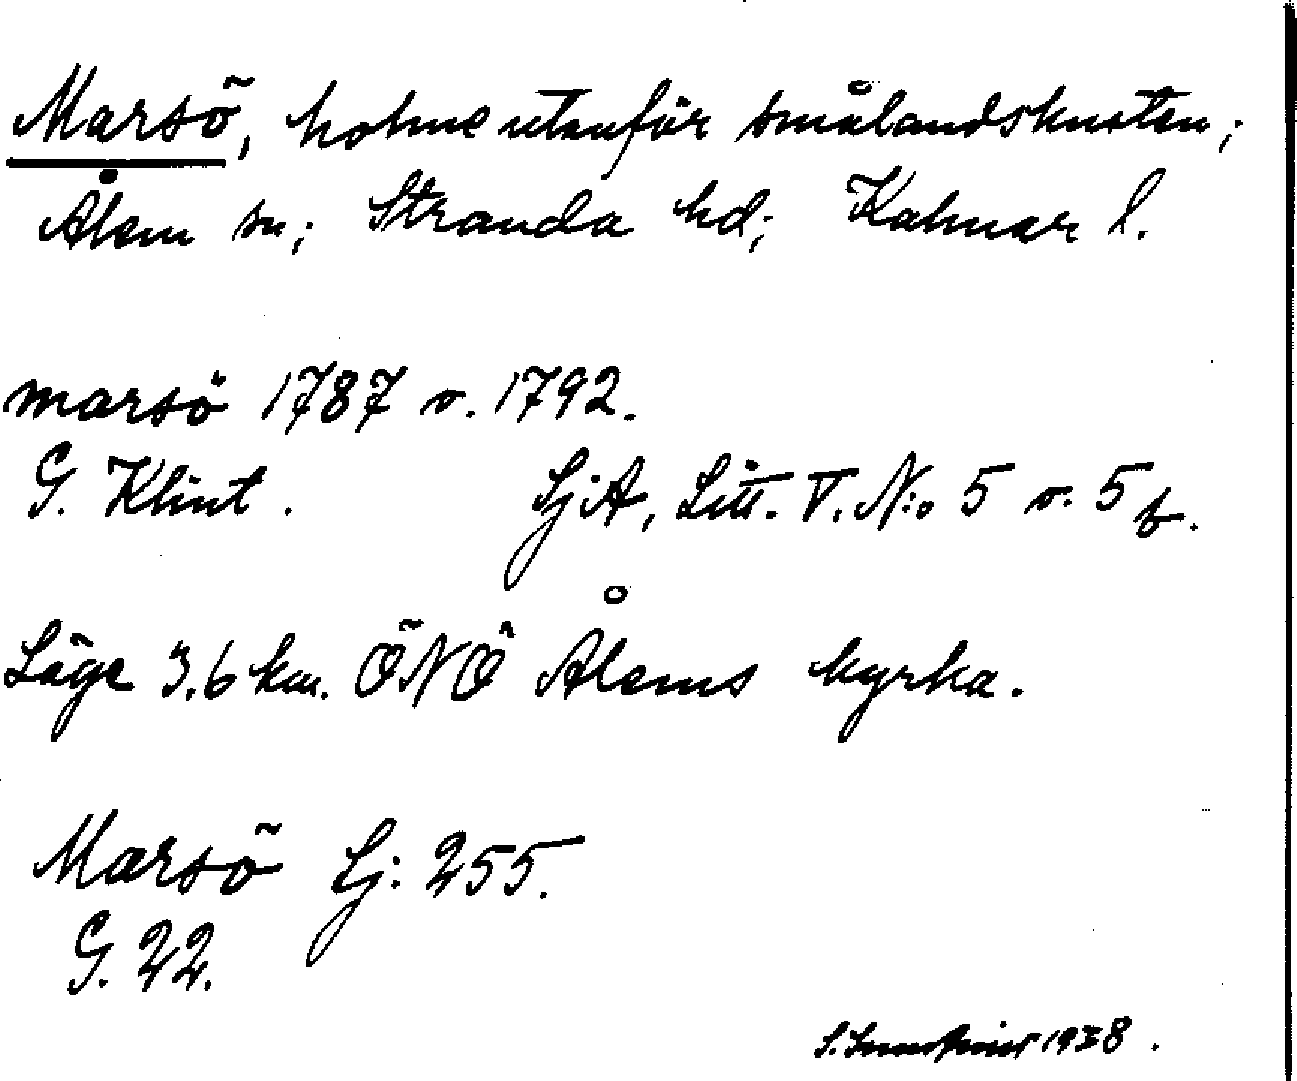 Marsö, holme utanför smålandskusten;
Ålem sn; Stranda hd; Kalmar l.
marsö 1787 o. 1792.
G. Klint. SjA, Litt. V. N:o 5 o. 5 b.
Läge 3,6 km. ÖNÖ Ålems kyrka.
Marsö Sj: 255.
G. 22.
S. 1938.